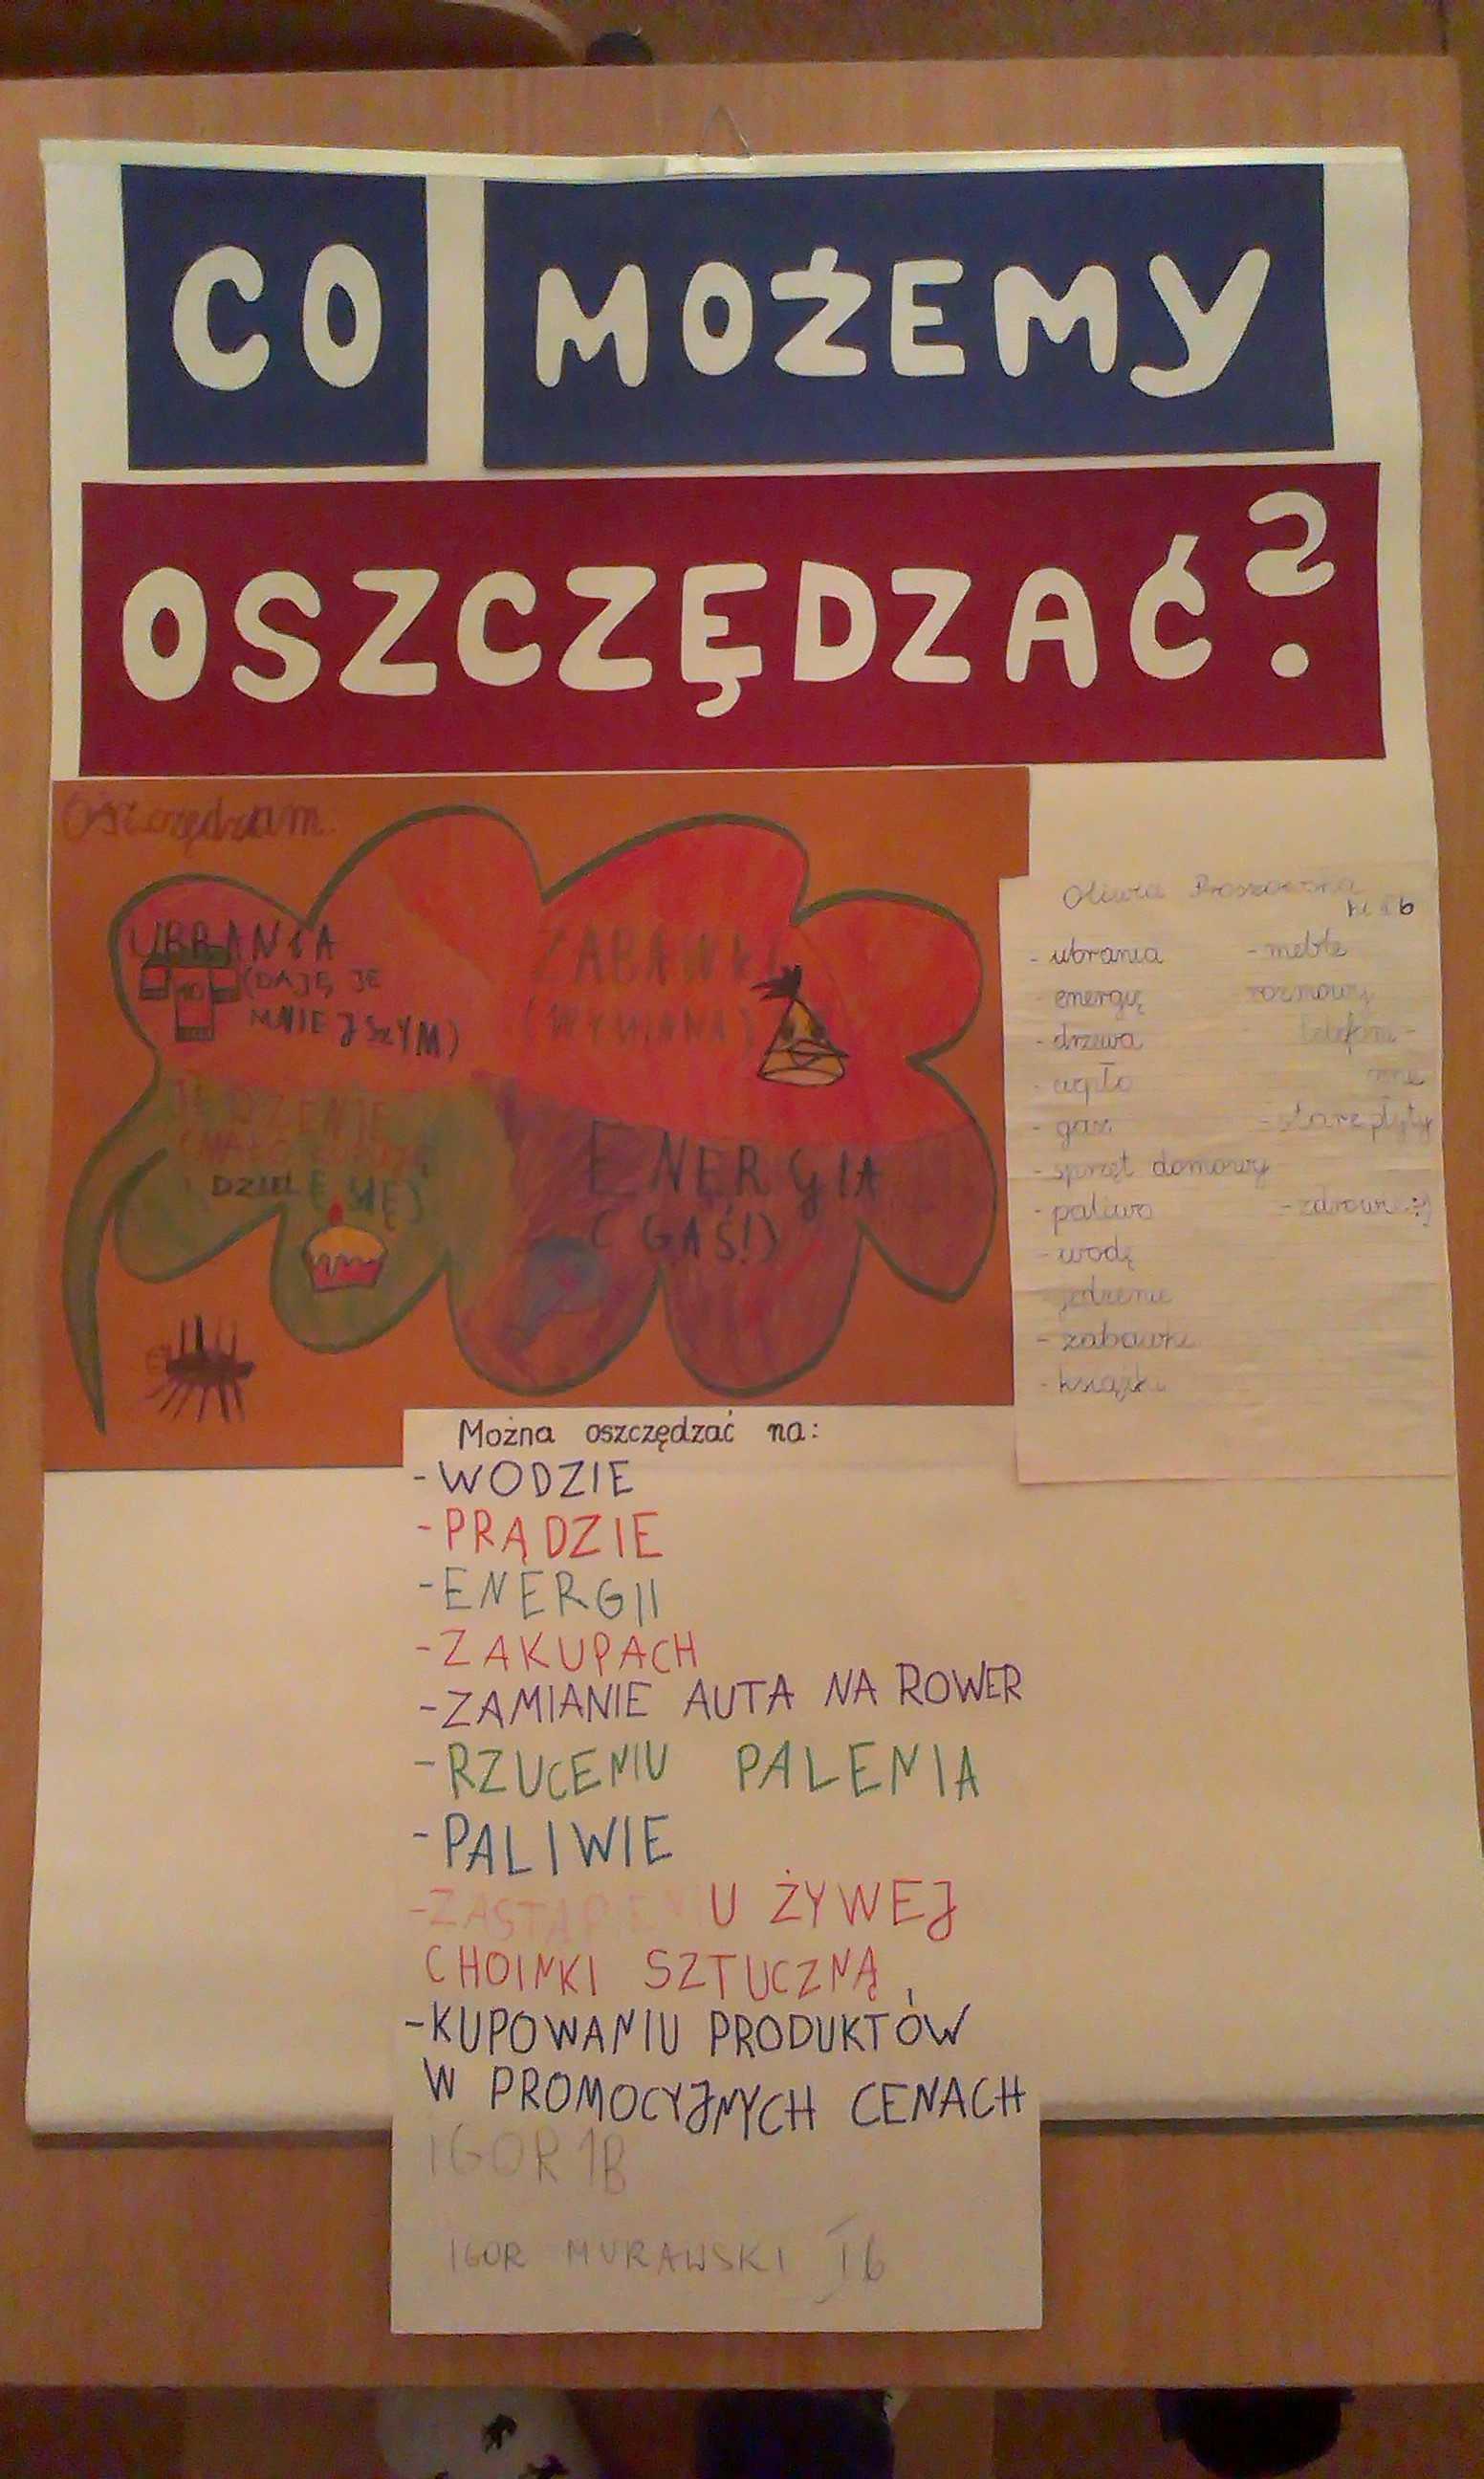 CO MOŻEMY
OSZCZĘDZAĆ?
Oszczędzam
UBRANIA
(DAJĘ JE
MNIEJSZYM)
10
ZABAWKI
(WYMIANA)
JEDZENIE
DZIELĘ SIĘ)
ENERGIA
(GAŚ!)
Oliwia
kl I b
- ubrania
energię
- drzewa
- ciepło
- gaz
- sprzęt domowy
- paliwo
- wodę
jedzenie
- zabawki
- książki
- meble
rozmowy
telefoni-
czne
- stare płyty
- zdrowie :)
Można oszczędzać na:
-WODZIE
-PRĄDZIE
-ENERGII
-ZAKUPACH
-ZAMIANIE AUTA NA ROWER
-RZUCENIU PALENIA
-PALIWIE
-ZASTĄPIENIU ŻYWEJ
CHOINKI SZTUCZNĄ
-KUPOWANIU PRODUKTÓW
W PROMOCYJNYCH CENACH
IGOR 1B
IGOR MURAWSKI I b